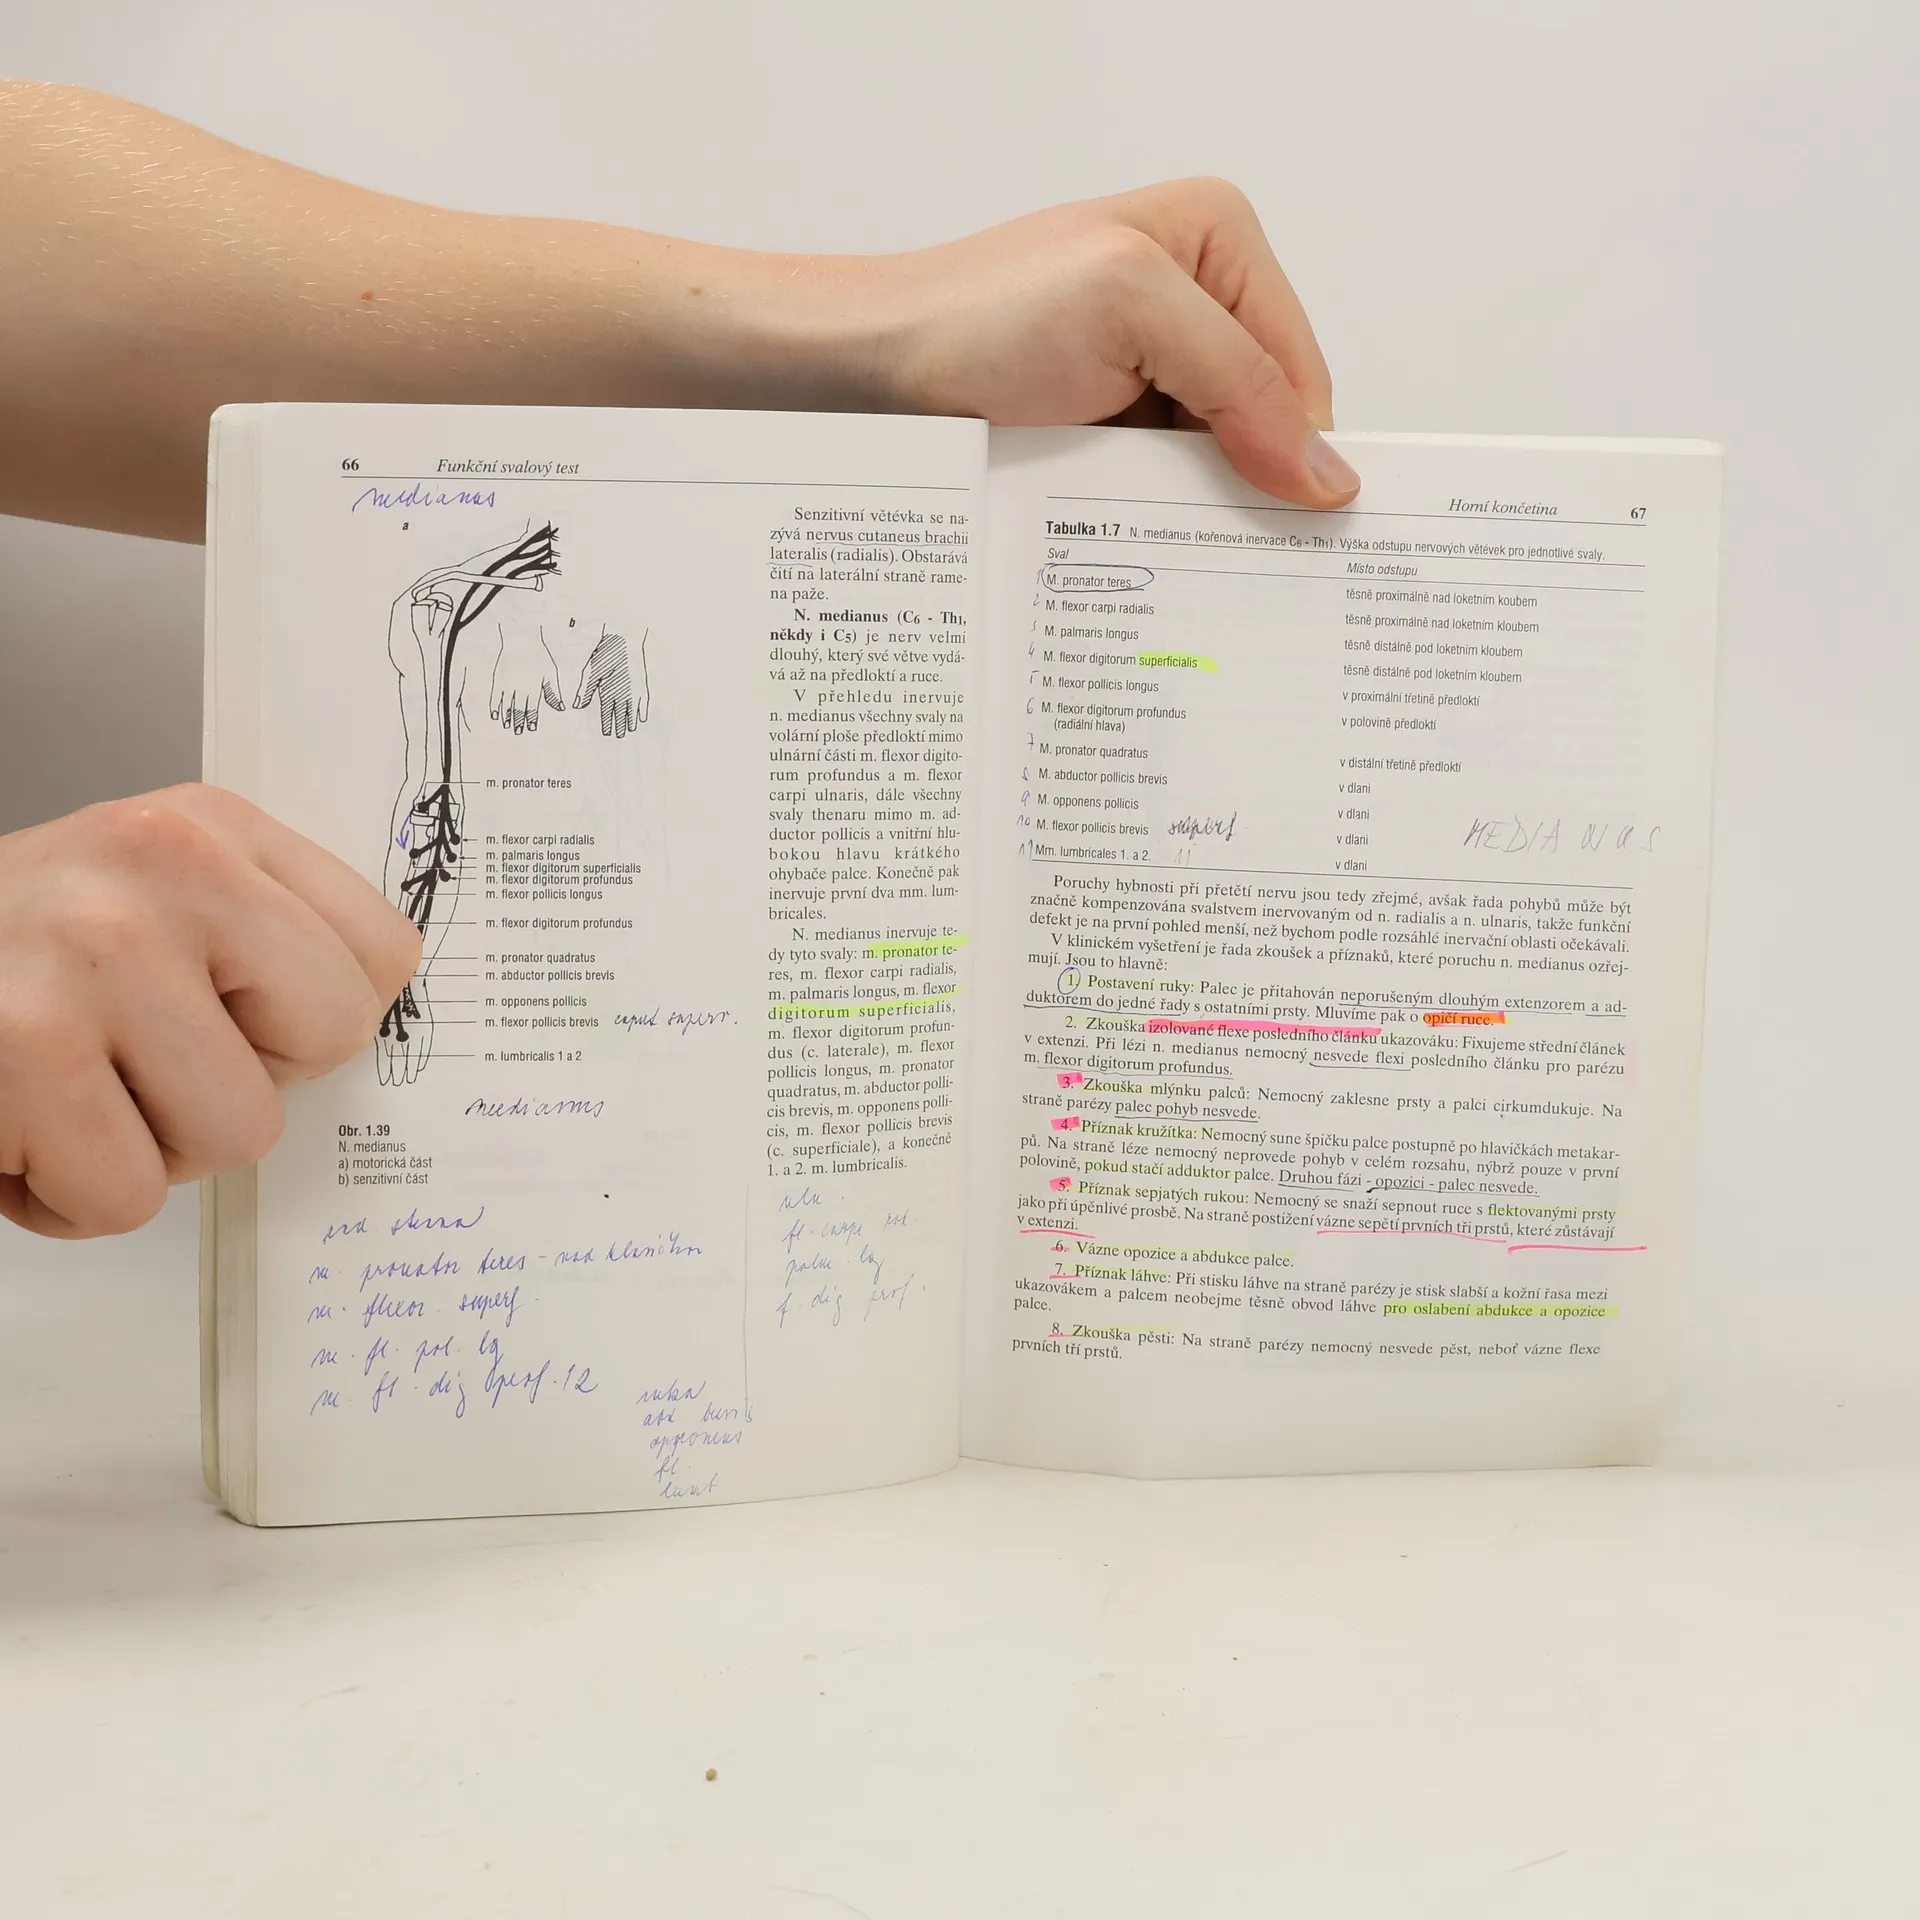 66 Funkční svalový test
medianus
a
b
m. pronator teres
m. flexor carpi radialis
m. palmaris longus
m. flexor digitorum superficialis
m. flexor digitorum profundus
m. flexor pollicis longus
m. flexor digitorum profundus
m. pronator quadratus
m. abductor pollicis brevis
m. opponens pollicis
m. flexor pollicis brevis caput superf.
m. lumbricalis 1 a 2
medianus
Obr. 1.39
N. medianus
a) motorická část
b) senzitivní část
m. pronator teres - nad
m. flexor superf.
m. fl. pol. lg
m. fl. dig prof. 12
Senzitivní větévka se na-
zývá nervus cutaneus brachii
lateralis (radialis). Obstarává
čití na laterální straně rame-
na paže.
N. medianus (C6 - Th1,
někdy i C5) je nerv velmi
dlouhý, který své větve vydá-
vá až na předloktí a ruce.
V přehledu inervuje
n. medianus všechny svaly na
volární ploše předloktí mimo
ulnární části m. flexor digito-
rum profundus a m. flexor
carpi ulnaris, dále všechny
svaly thenaru mimo m. ad-
ductor pollicis a vnitřní hlu-
bokou hlavu krátkého
ohybače palce. Konečně pak
inervuje první dva mm. lum-
bricales.
N. medianus inervuje te-
dy tyto svaly: m. pronator te-
res, m. flexor carpi radialis,
m. palmaris longus, m. flexor
digitorum superficialis,
m. flexor digitorum profun-
dus (c. laterale), m. flexor
pollicis longus, m. pronator
quadratus, m. abductor polli-
cis brevis, m. opponens polli-
cis, m. flexor pollicis brevis
(c. superficiale), a konečně
1. a 2. m. lumbricalis.
fl. carpi rad.
palm. lg
f. dig. prof.
ruka
abd brevis
opponens
fl.
lumb
Horní končetina 67
Tabulka 1.7 N. medianus (kořenová inervace C6 - Th1). Výška odstupu nervových větévek pro jednotlivé svaly.
Sval Místo odstupu
1 M. pronator teres těsně proximálně nad loketním koubem
2 M. flexor carpi radialis těsně proximálně nad loketním kloubem
3 M. palmaris longus těsně distálně pod loketním kloubem
4 M. flexor digitorum superficialis těsně distálně pod loketním kloubem
5 M. flexor pollicis longus v proximální třetině předloktí
6 M. flexor digitorum profundus v polovině předloktí
(radiální hlava)
7 M. pronator quadratus v distální třetině předloktí
8 M. abductor pollicis brevis v dlani
9 M. opponens pollicis v dlani
10 M. flexor pollicis brevis superf. v dlani
11 Mm. lumbricales 1. a 2. v dlani
MEDIANUS
Poruchy hybnosti při přetětí nervu jsou tedy zřejmé, avšak řada pohybů může být
značně kompenzována svalstvem inervovaným od n. radialis a n. ulnaris, takže funkční
defekt je na první pohled menší, než bychom podle rozsáhlé inervační oblasti očekávali.
V klinickém vyšetření je řada zkoušek a příznaků, které poruchu n. medianus ozřej-
mují. Jsou to hlavně:
1. Postavení ruky: Palec je přitahován neporušeným dlouhým extenzorem a ad-
duktorem do jedné řady s ostatními prsty. Mluvíme pak o opičí ruce.
2. Zkouška izolované flexe posledního článku ukazováku: Fixujeme střední článek
v extenzi. Při lézi n. medianus nemocný nesvede flexi posledního článku pro parézu
m. flexor digitorum profundus.
3. Zkouška mlýnku palců: Nemocný zaklesne prsty a palci cirkumdukuje. Na
straně parézy palec pohyb nesvede.
4. Příznak kružítka: Nemocný sune špičku palce postupně po hlavičkách metakar-
pů. Na straně léze nemocný neprovede pohyb v celém rozsahu, nýbrž pouze v první
polovině, pokud stačí adduktor palce. Druhou fázi - opozici - palec nesvede.
5. Příznak sepjatých rukou: Nemocný se snaží sepnout ruce s flektovanými prsty
jako při úpěnlivé prosbě. Na straně postižení vázne sepětí prvních tří prstů, které zůstávají
v extenzi.
6. Vázne opozice a abdukce palce.
7. Příznak láhve: Při stisku láhve na straně parézy je stisk slabší a kožní řasa mezi
ukazovákem a palcem neobejme těsně obvod láhve pro oslabení abdukce a opozice
palce.
8. Zkouška pěsti: Na straně parézy nemocný nesvede pěst, neboť vázne flexe
prvních tří prstů.